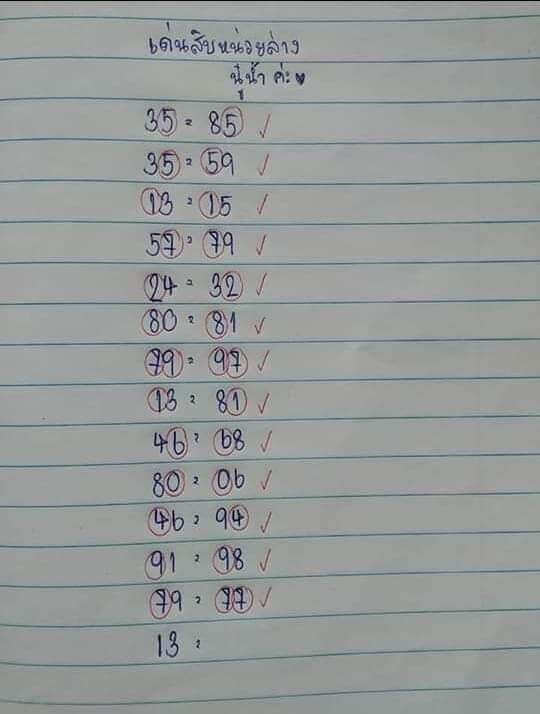 เด่นสิบหน่วยล่าง
นู๋น้ำ ค่ะ
35 = 85 ✓
35 = 59 ✓
13 = 15 ✓
57 = 79 ✓
24 = 32 ✓
80 = 81 ✓
79 = 97 ✓
13 = 81 ✓
46 = 68 ✓
80 = 06 ✓
46 = 94 ✓
91 = 98 ✓
79 = 77 ✓
13 =